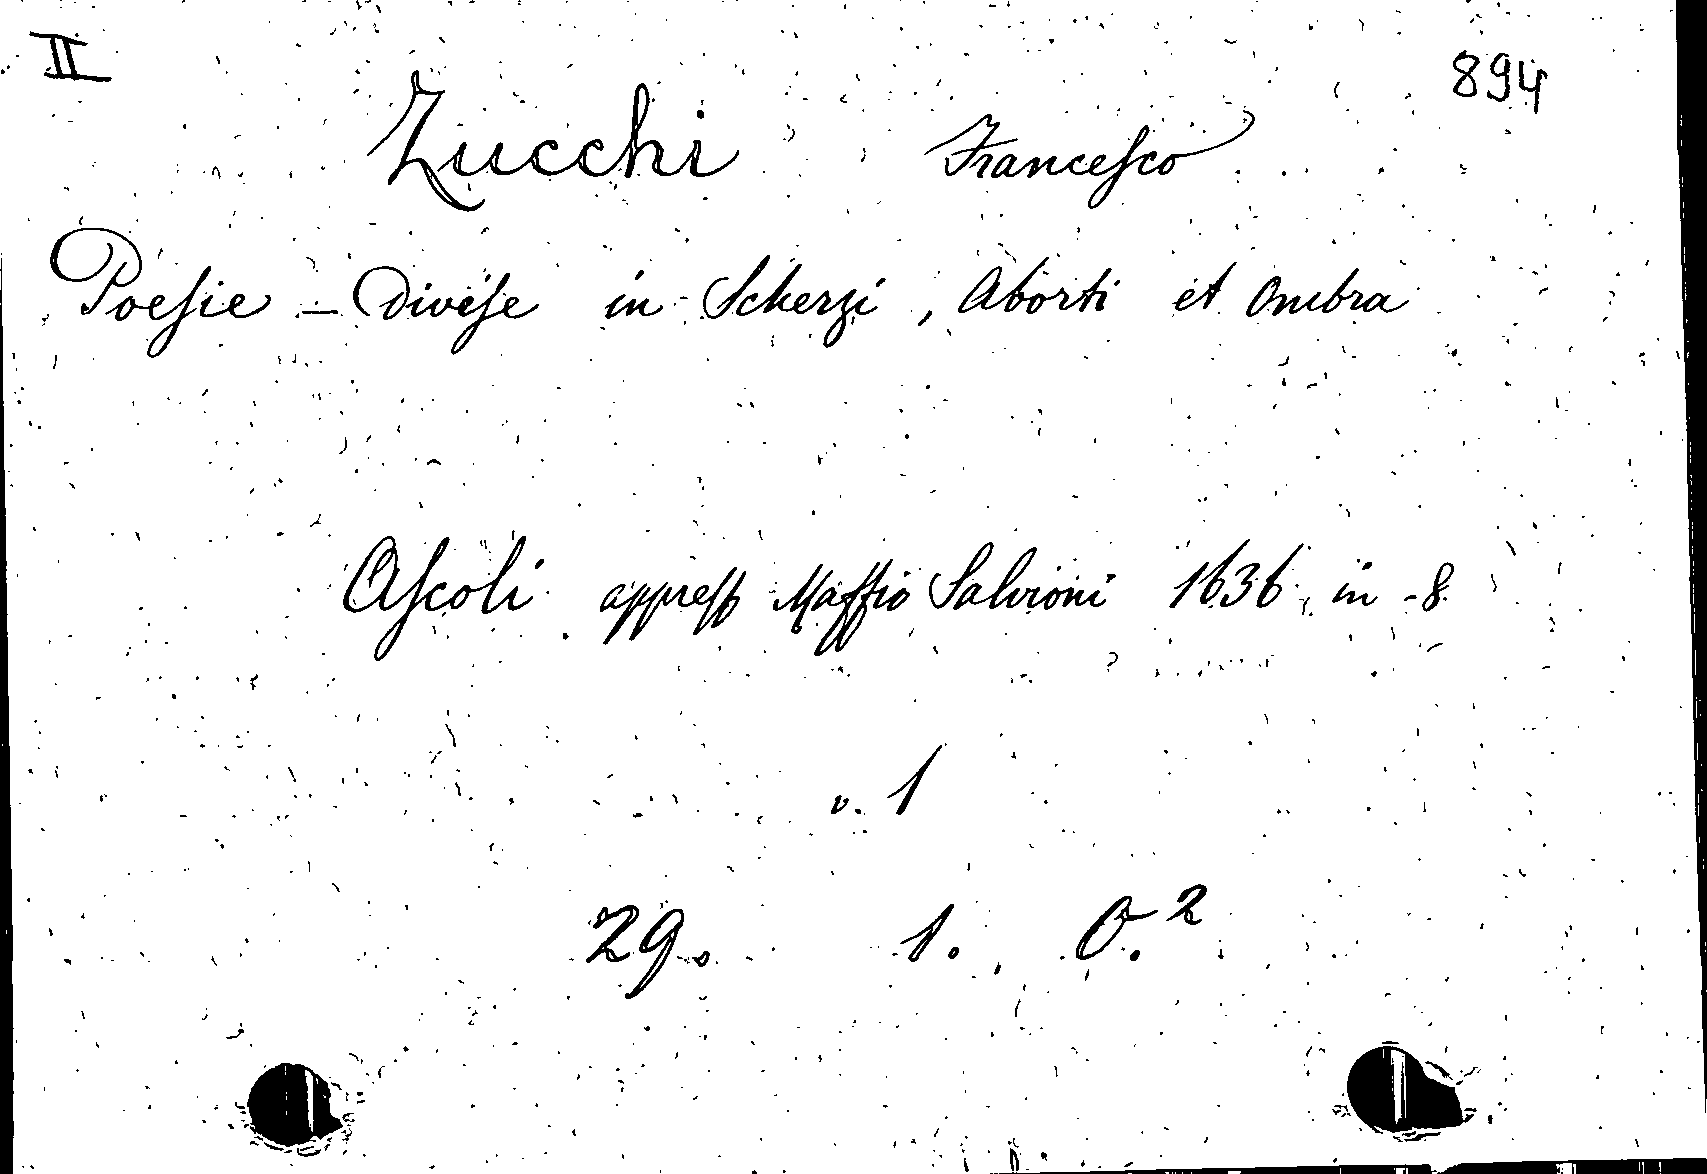 II
894
Zucchi Francesco
Poesie – Divise in Scherzi, Aborti et Ombra
Ascoli appress Maffio Salvioni 1636 in-8
v. 1
29. 1. O.²